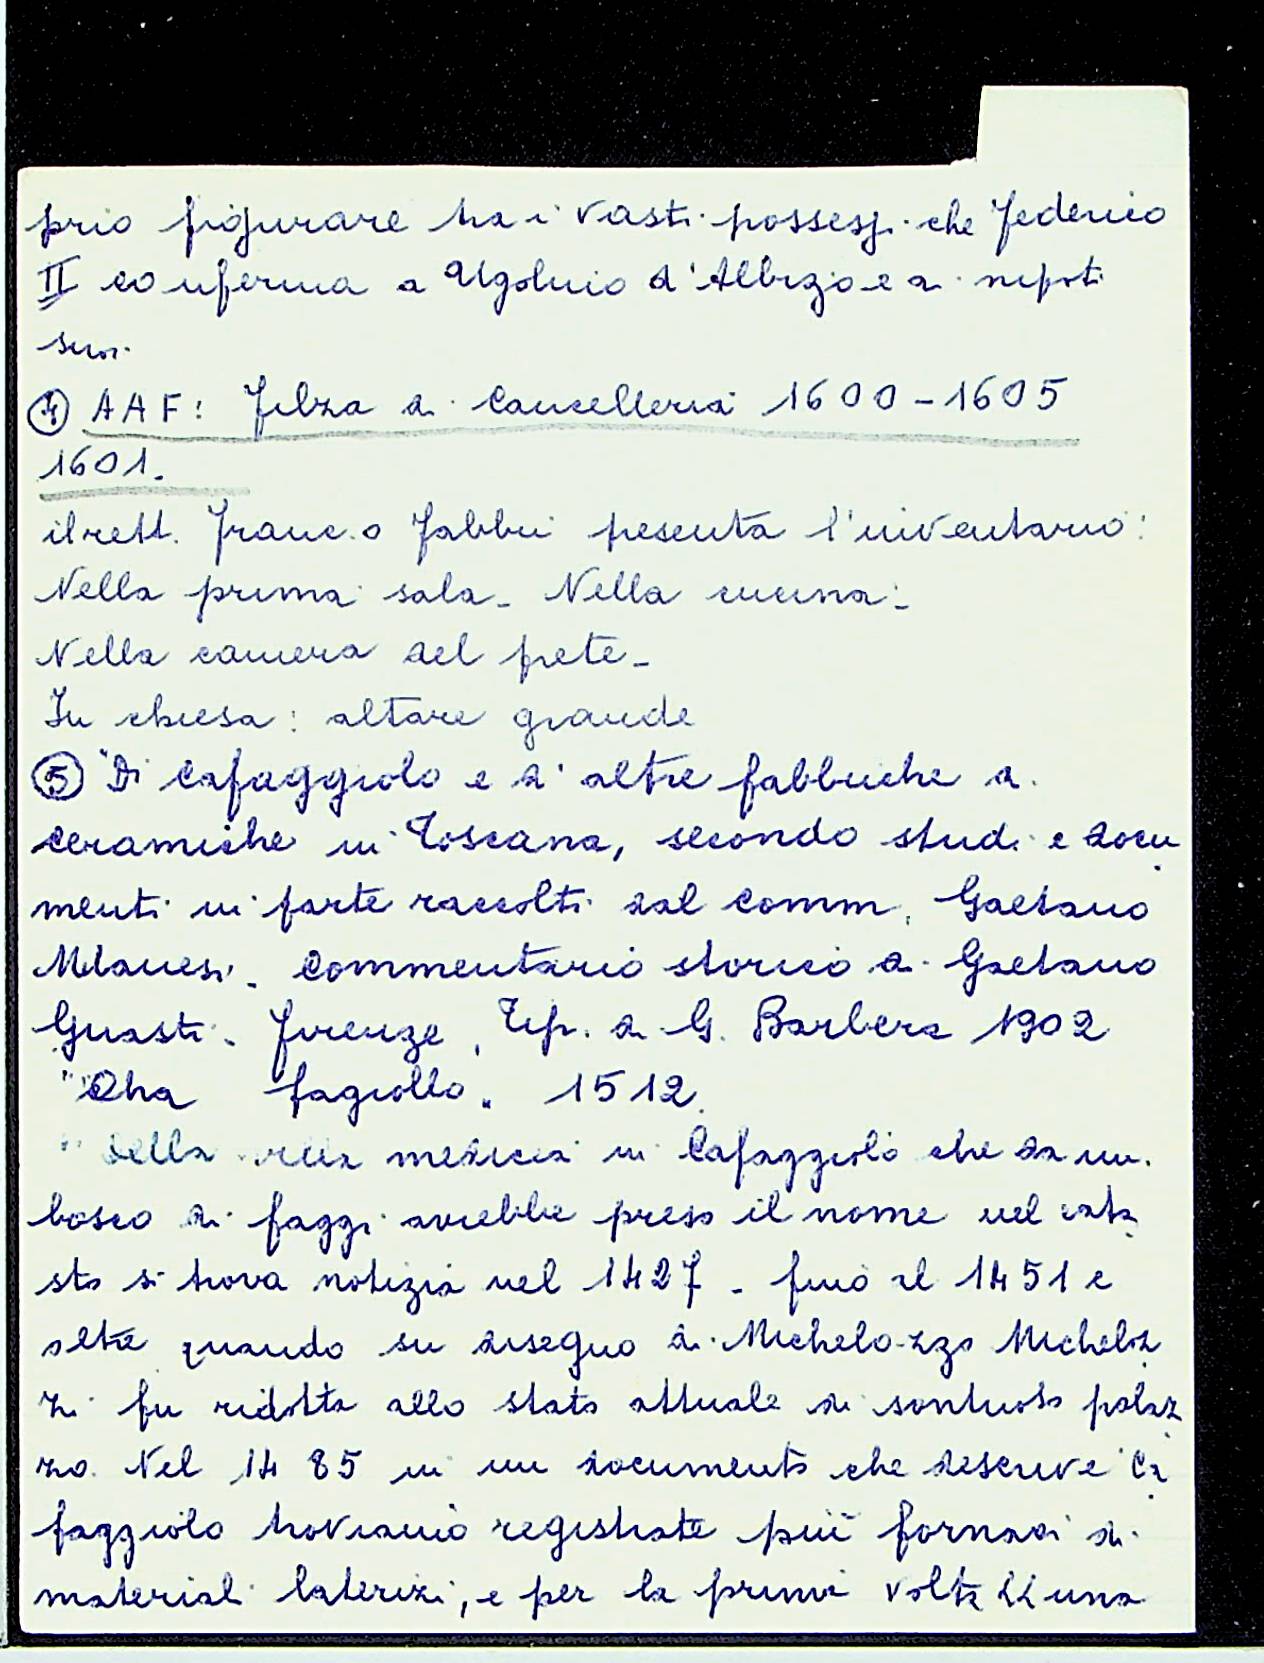 prio figurare tra i vasti possessi che Federico
II conferma a Ugolino d'Albizo e ai nipoti
suoi.
④ AAF: Filza di Cancelleria 1600-1605
1601.
il rett. Franc.o Fabbri presenta l'inventario:
Nella prima sala - Nella cucina:-
Nella camera del prete -
In chiesa: altare grande
⑤ "Di Cafaggiolo e d'altre fabbriche di
ceramiche in Toscana, secondo studi e docu
menti in parte raccolti dal comm. Gaetano
Milanesi - Commentario storico di Gaetano
Guasti. Firenze, Tip. di G. Barbera 1902
"Cha fagiollo" 1512.
"Della villa medicea in Cafaggiolo che da un
bosco di faggi avrebbe preso il nome nel cata
sto si trova notizia nel 1427 - fino al 1451 e
oltre quando su disegno di Michelozzo Micheloz
zi fu ridotta allo stato attuale di sontuoso palaz
zo. Nel 1485 in un documento che descrive Ca
faggiolo troviamo registrate più fornaci di
materiali laterizi, e per la prima volta una